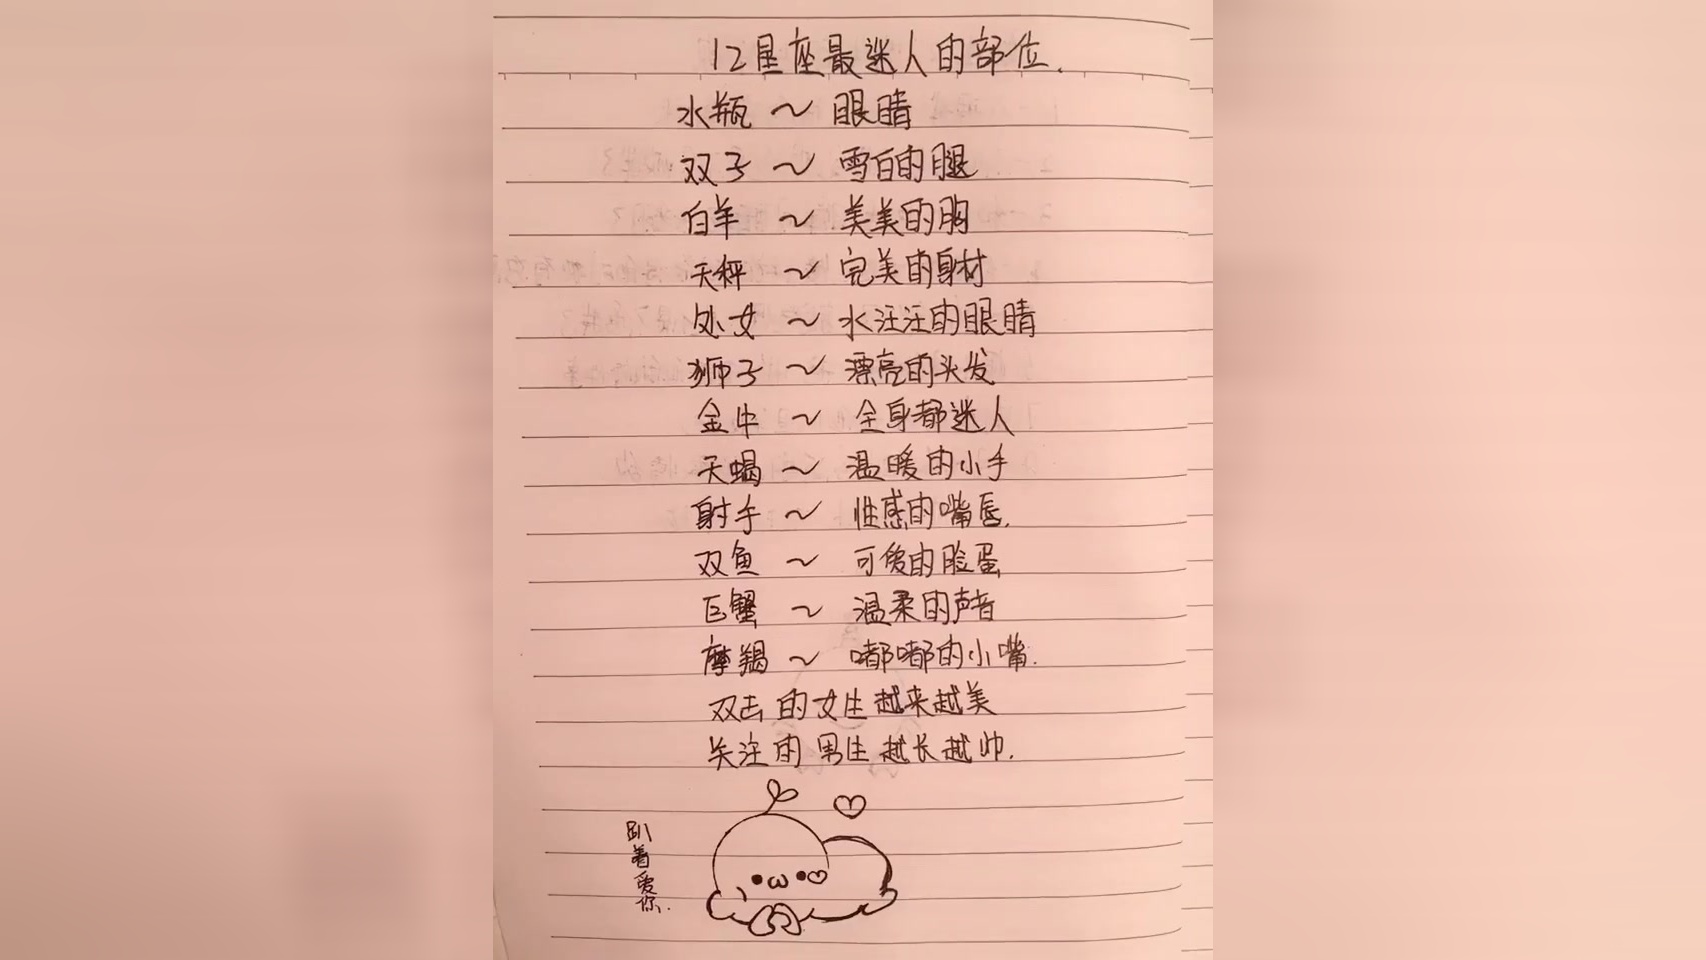 12星座最迷人的部位.
水瓶～眼睛
双子～雪白的腿
白羊～美美的胸
天秤～完美的身材
处女～水汪汪的眼睛
狮子～漂亮的头发
金牛～全身都迷人
天蝎～温暖的小手
射手～性感的嘴唇.
双鱼～可爱的脸蛋
巨蟹～温柔的声音
摩羯～嘟嘟的小嘴.
双击的女生越来越美
关注的男生越长越帅.
趴着爱你.